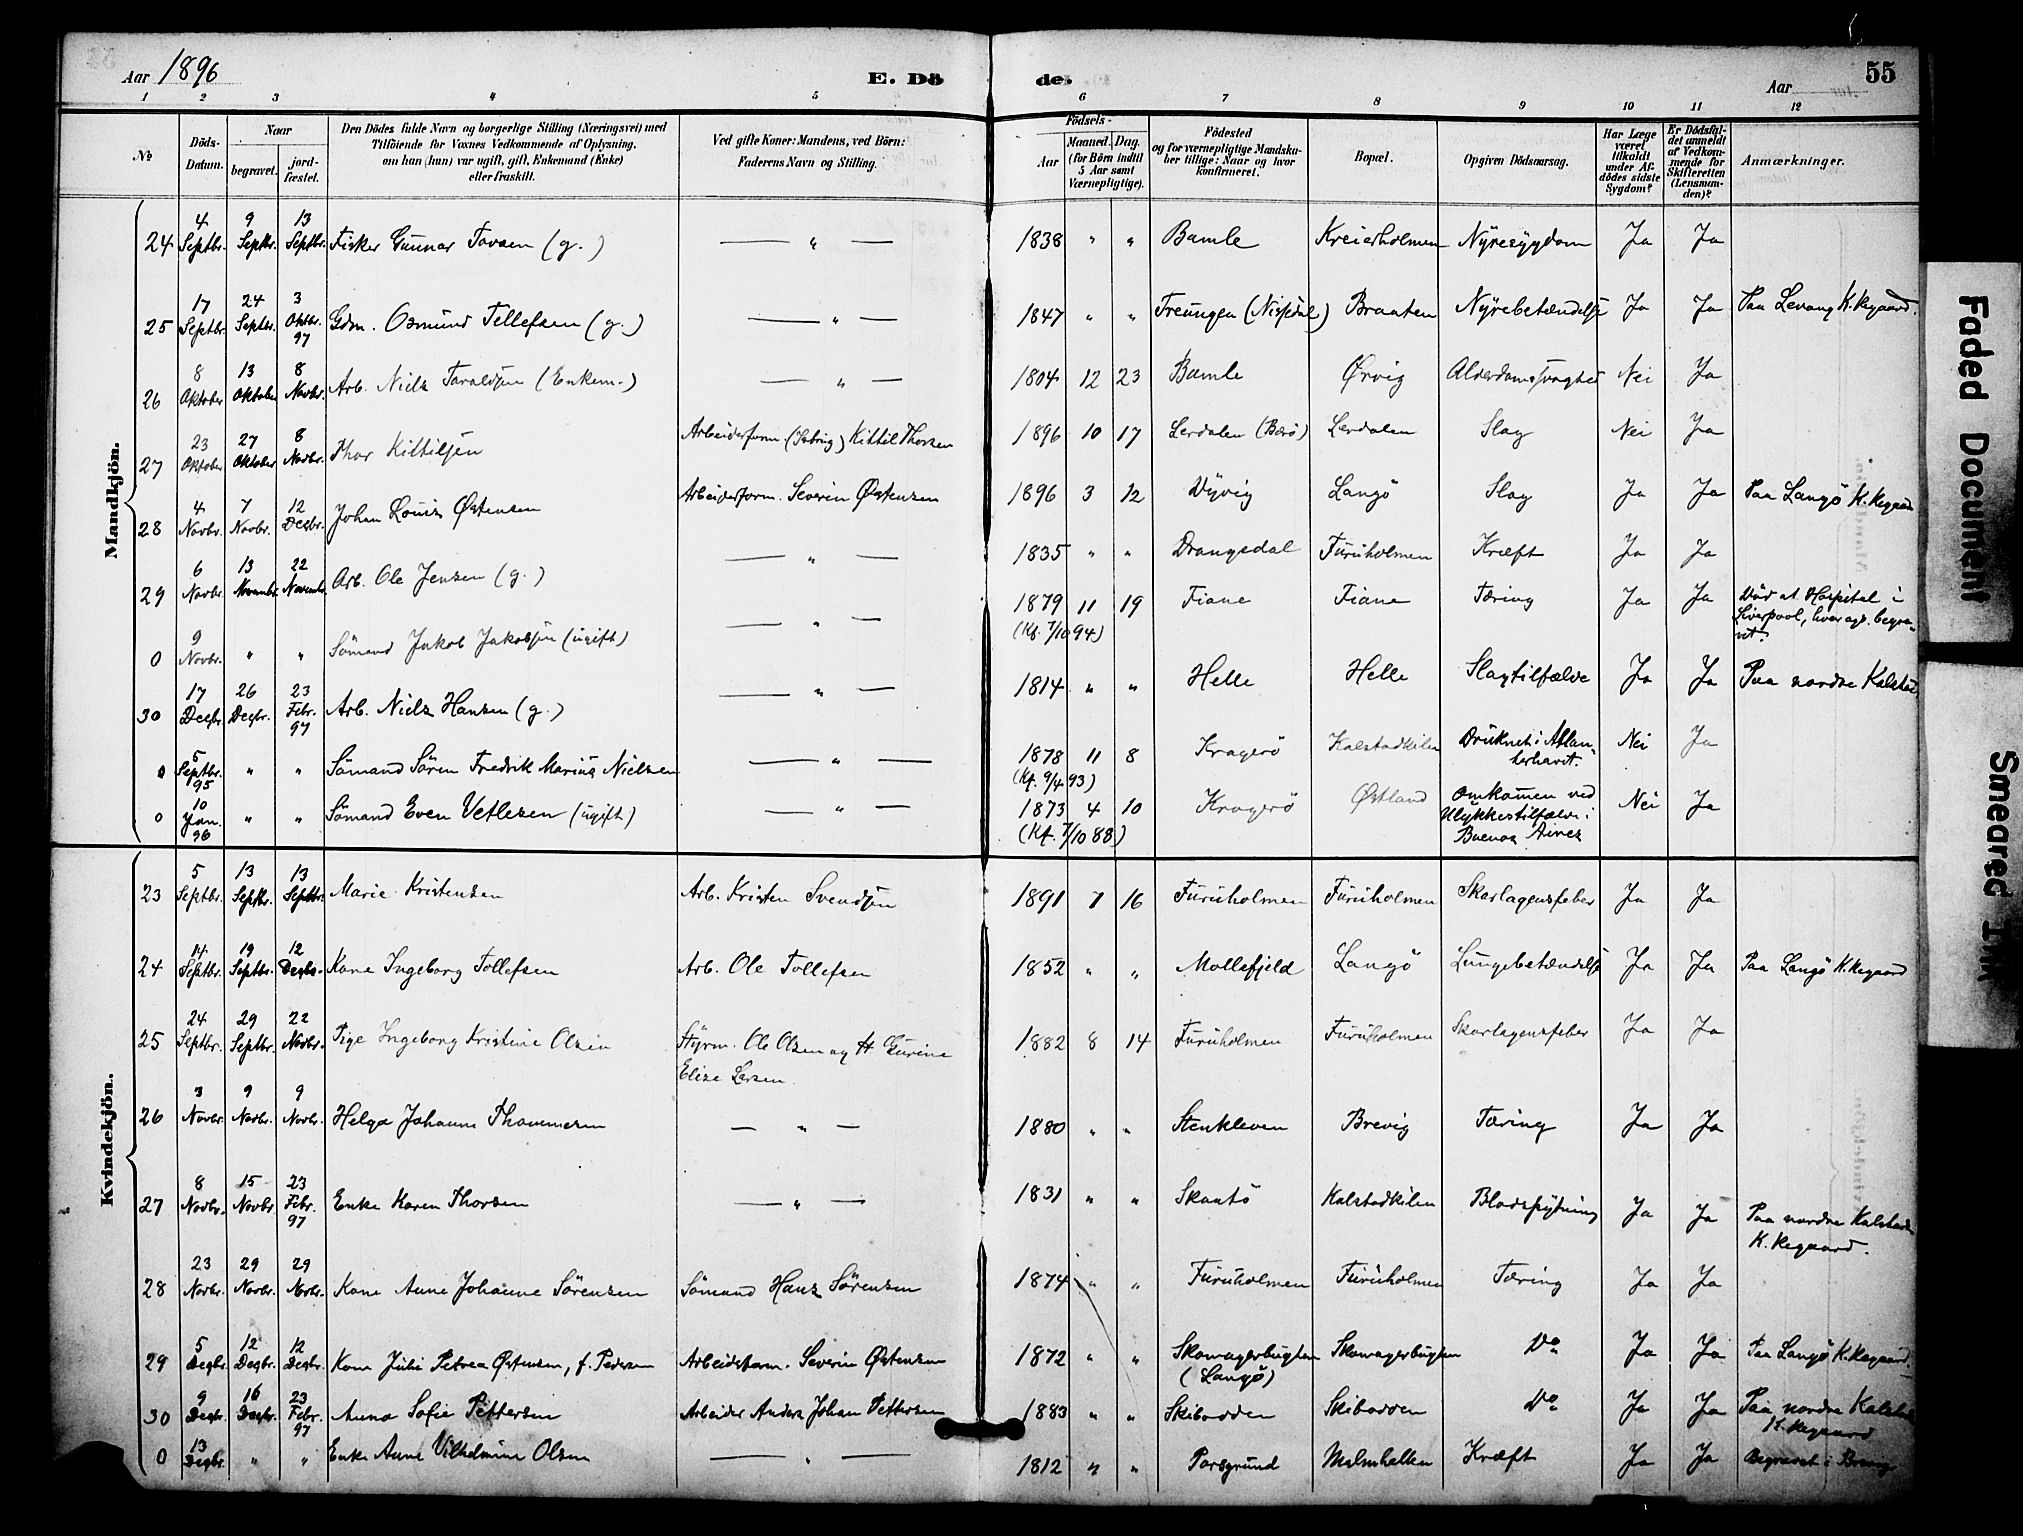 Aar 1896 E. Dö de. Aar 55
1 2 3 4 5 6 7 8 9 10 11 12
№ Döds-Datum. Naar begravet. jord-fæstet. Den Dödes fulde Navn og borgerlige Stilling (Næringsvei) med Tilföiende for Voxnes Vedkommende af Oplysning, om han (hun) var ugift, gift, Enkemand (Enke) eller fraskilt. Ved gifte Koner: Mandens, ved Börn: Faderens Navn og Stilling. Födsels- Aar Maaned. Dag. (for Börn indtil 5 Aar samt Værnepligtige). Födested og for værnepligtige Mandskaber tillige: Naar og hvor konfirmeret. Bopæl. Opgiven Dödsaarsag. Har Læge været tilkaldt under Afdödes sidste Sygdom? Er Dödsfaldet anmeldt af Vedkommende for Skifteretten (Lensmanden)? Anmærkninger.
Mandkjön.
24 4 Septbr. 9 Septbr. 13 Septbr. Fisker Gunnar Tovsen (g.) — „ — 1838 „ „ Bamle Kreierholmen Nyresygdom Ja Ja
25 17 Septbr. 24 Septbr. 3 Oktbr. 97 Gdm. Osmund Tellefsen (g.) — „ — 1847 „ „ Treungen (Nissedal) Braaten Nyrebetændelse Ja Ja Paa Levang K.kegaard.
26 8 Oktober 13 Oktober 8 Novbr. Arb. Niels Taraldsen (Enkem.) — „ — 1804 12 23 Bamle Ørvig Alderdomssvaghed Nei Ja
27 23 Oktober 27 Oktober 8 Novbr. Thor Kittilsen Arbeiderform. Kittil Thorsen 1896 10 17 Lerdalen (Borö) Lerdalen Slag Nei Ja
28 4 Novbr. 7 Novbr. 12 Decbr. Johan Louis Østensen Arbeiderform. Severin Østensen 1896 3 12 Dyvig Langö Slag Ja Ja Paa Langö K.kegaard
29 6 Novbr. 13 Novembr. 22 Novembr. Arb. Ole Jensen (g.) — „ — 1835 „ „ Drangedal Furuholmen Kræft Ja Ja
0 9 Novbr. „ „ Sömand Jakob Jakobsen (ugift) — „ — 1879 11 19 (Kf. 7/10 94) Fiane Fiane Tæring Ja Ja Död at Hospital i Liverpool, hvor ogs. begravet.
30 17 Decbr. 26 Decbr. 23 Febr. 97 Arb. Niels Hansen (g.) — „ — 1814 „ „ Helle Helle Slagtilfælde Ja Ja Paa nordre Kalstad
0 5 Septbr. 95 „ „ Sömand Sören Fredrik Marius Nielsen — „ — 1878 11 8 (Kf. 9/4 93) Kragerö Kalstadkilen Druknet i Atlanterhavet. Nei Ja
0 10 Jan. 96 „ „ Sömand Even Vetlesen (ugift) — „ — 1873 4 10 (Kf. 7/10 88) Kragerö Østland Omkommen ved Ulykkestilfælde i Buenos Aires Nei Ja
Kvindekjön.
23 5 Septbr. 13 Septbr. 13 Septbr. Marie Kristensen Arb. Kristen Svendsen 1891 7 16 Furuholmen Furuholmen Skarlagensfeber Ja Ja
24 14 Septbr. 19 Septbr. 12 Decbr. Kone Ingeborg Tollefsen Arb. Ole Tollefsen 1852 „ „ Mollefjeld Langö Lungebetændelse Ja Ja Paa Langö K.kegaard
25 24 Septbr. 29 Septbr. 22 Novbr. Pige Ingeborg Kristine Olsen Styrm. Ole Olsen og H. Gurine Elise Larsen. 1882 8 14 Furuholmen Furuholmen Skarlagensfeber Ja Ja
26 3 Novbr. 9 Novbr. 9 Novbr. Helga Johanne Thommesen — „ — 1880 „ „ Stenkleven Brevig Tæring Ja Ja
27 8 Novbr. 15 Novbr. 23 Febr. 97 Enke Karen Thorsen — „ — 1831 „ „ Skaatö Kalstadkilen Blodspytning Ja Ja Paa nordre Kalstad K.kegaard.
28 23 Novbr. 29 Novbr. 29 Novbr. Kone Anne Johanne Sörensen Sömand Hans Sörensen 1874 „ „ Furuholmen Furuholmen Tæring Ja Ja
29 5 Decbr. 12 Decbr. 12 Decbr. Kone Juli Petrea Østensen, f. Pedersen Arbeidsform. Severin Østensen 1872 „ „ Skomagerbugten (Langö) Skomagerbugten Do Ja Ja Paa Langö K.kegaard.
30 9 Decbr. 16 Decbr. 23 Febr. 97 Anna Sofie Pettersen Arbeider Anders Johan Pettersen 1883 „ „ Skibodden Skibodden Do Ja Ja Paa nordre Kalstad K.kegaard
0 13 Decbr. „ „ Enke Anne Vilhelmine Olsen — „ — 1812 „ „ Porsgrund Malmhellen Kræft Ja Ja Begravet i Brevig
Faded Document
Smeared Ink